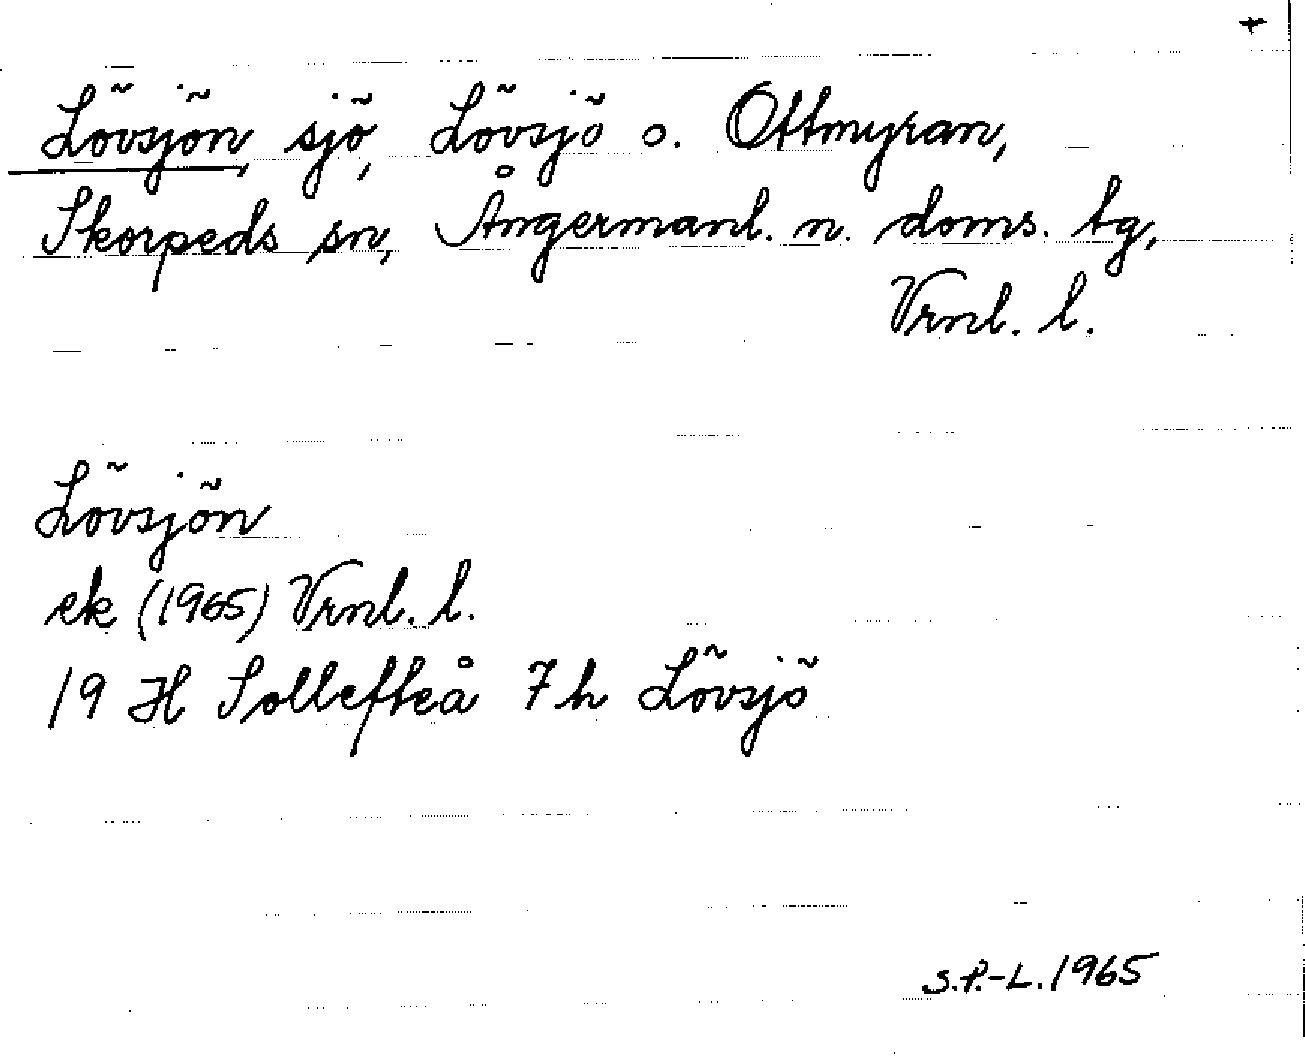 +
Lövsjön, sjö, Lövsjö o. Ottmyran,
Skorpeds sn, Ångermanl. n. doms. tg,
Vrnl. l.
Lövsjön
ek (1965) Vrnl. l.
19 H Sollefteå 7h Lövsjö
S.P.-L. 1965